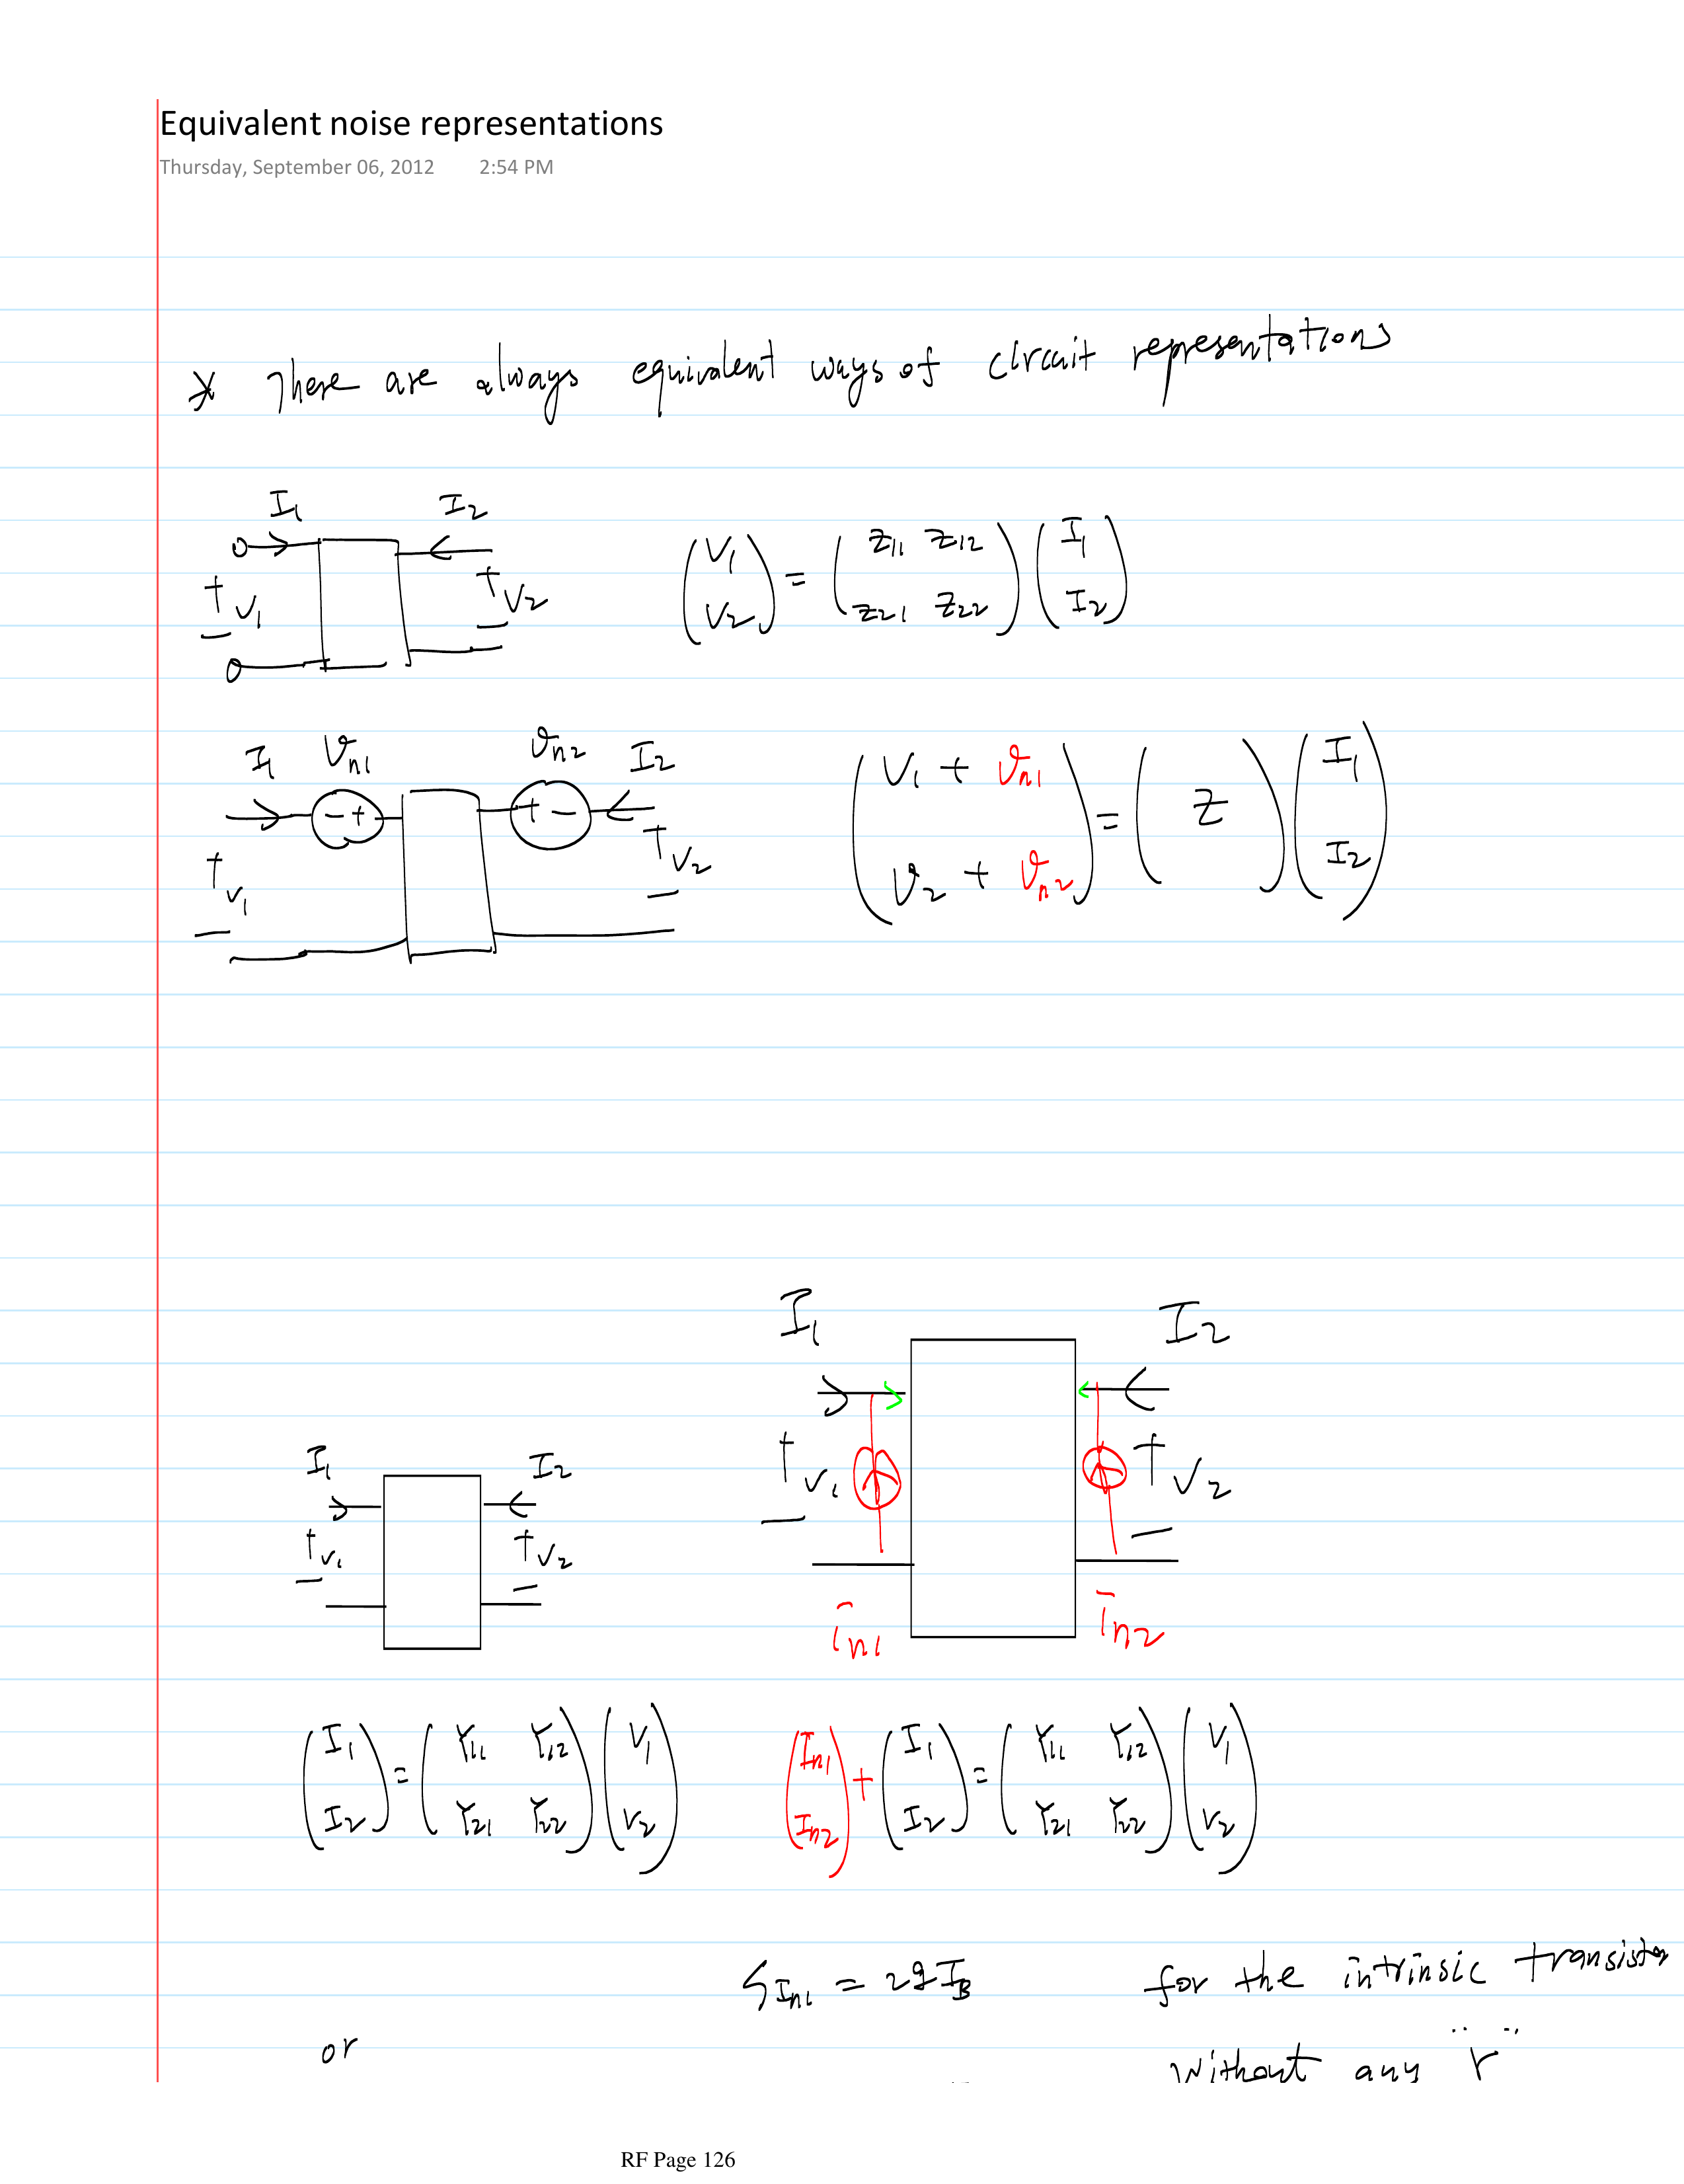 Equivalent noise representations
Thursday, September 06, 2012 2:54 PM
* There are always equivalent ways of circuit representations
I1 I2
+ V1 - + V2 -
(V1 V2) = (Z11 Z12 Z21 Z22) (I1 I2)
I1 Vn1 Vn2 I2
- + + -
+ V1 - + V2 -
(V1 + Vn1 V2 + Vn2) = (Z) (I1 I2)
I1 I2
+ V1 - + V2 -
in1 in2
I1 I2
+ V1 - + V2 -
(I1 I2) = (Y11 Y12 Y21 Y22) (V1 V2)
(In1 In2) + (I1 I2) = (Y11 Y12 Y21 Y22) (V1 V2)
SIn1 = 2qIB for the intrinsic transistor
or without any "r"
RF Page 126